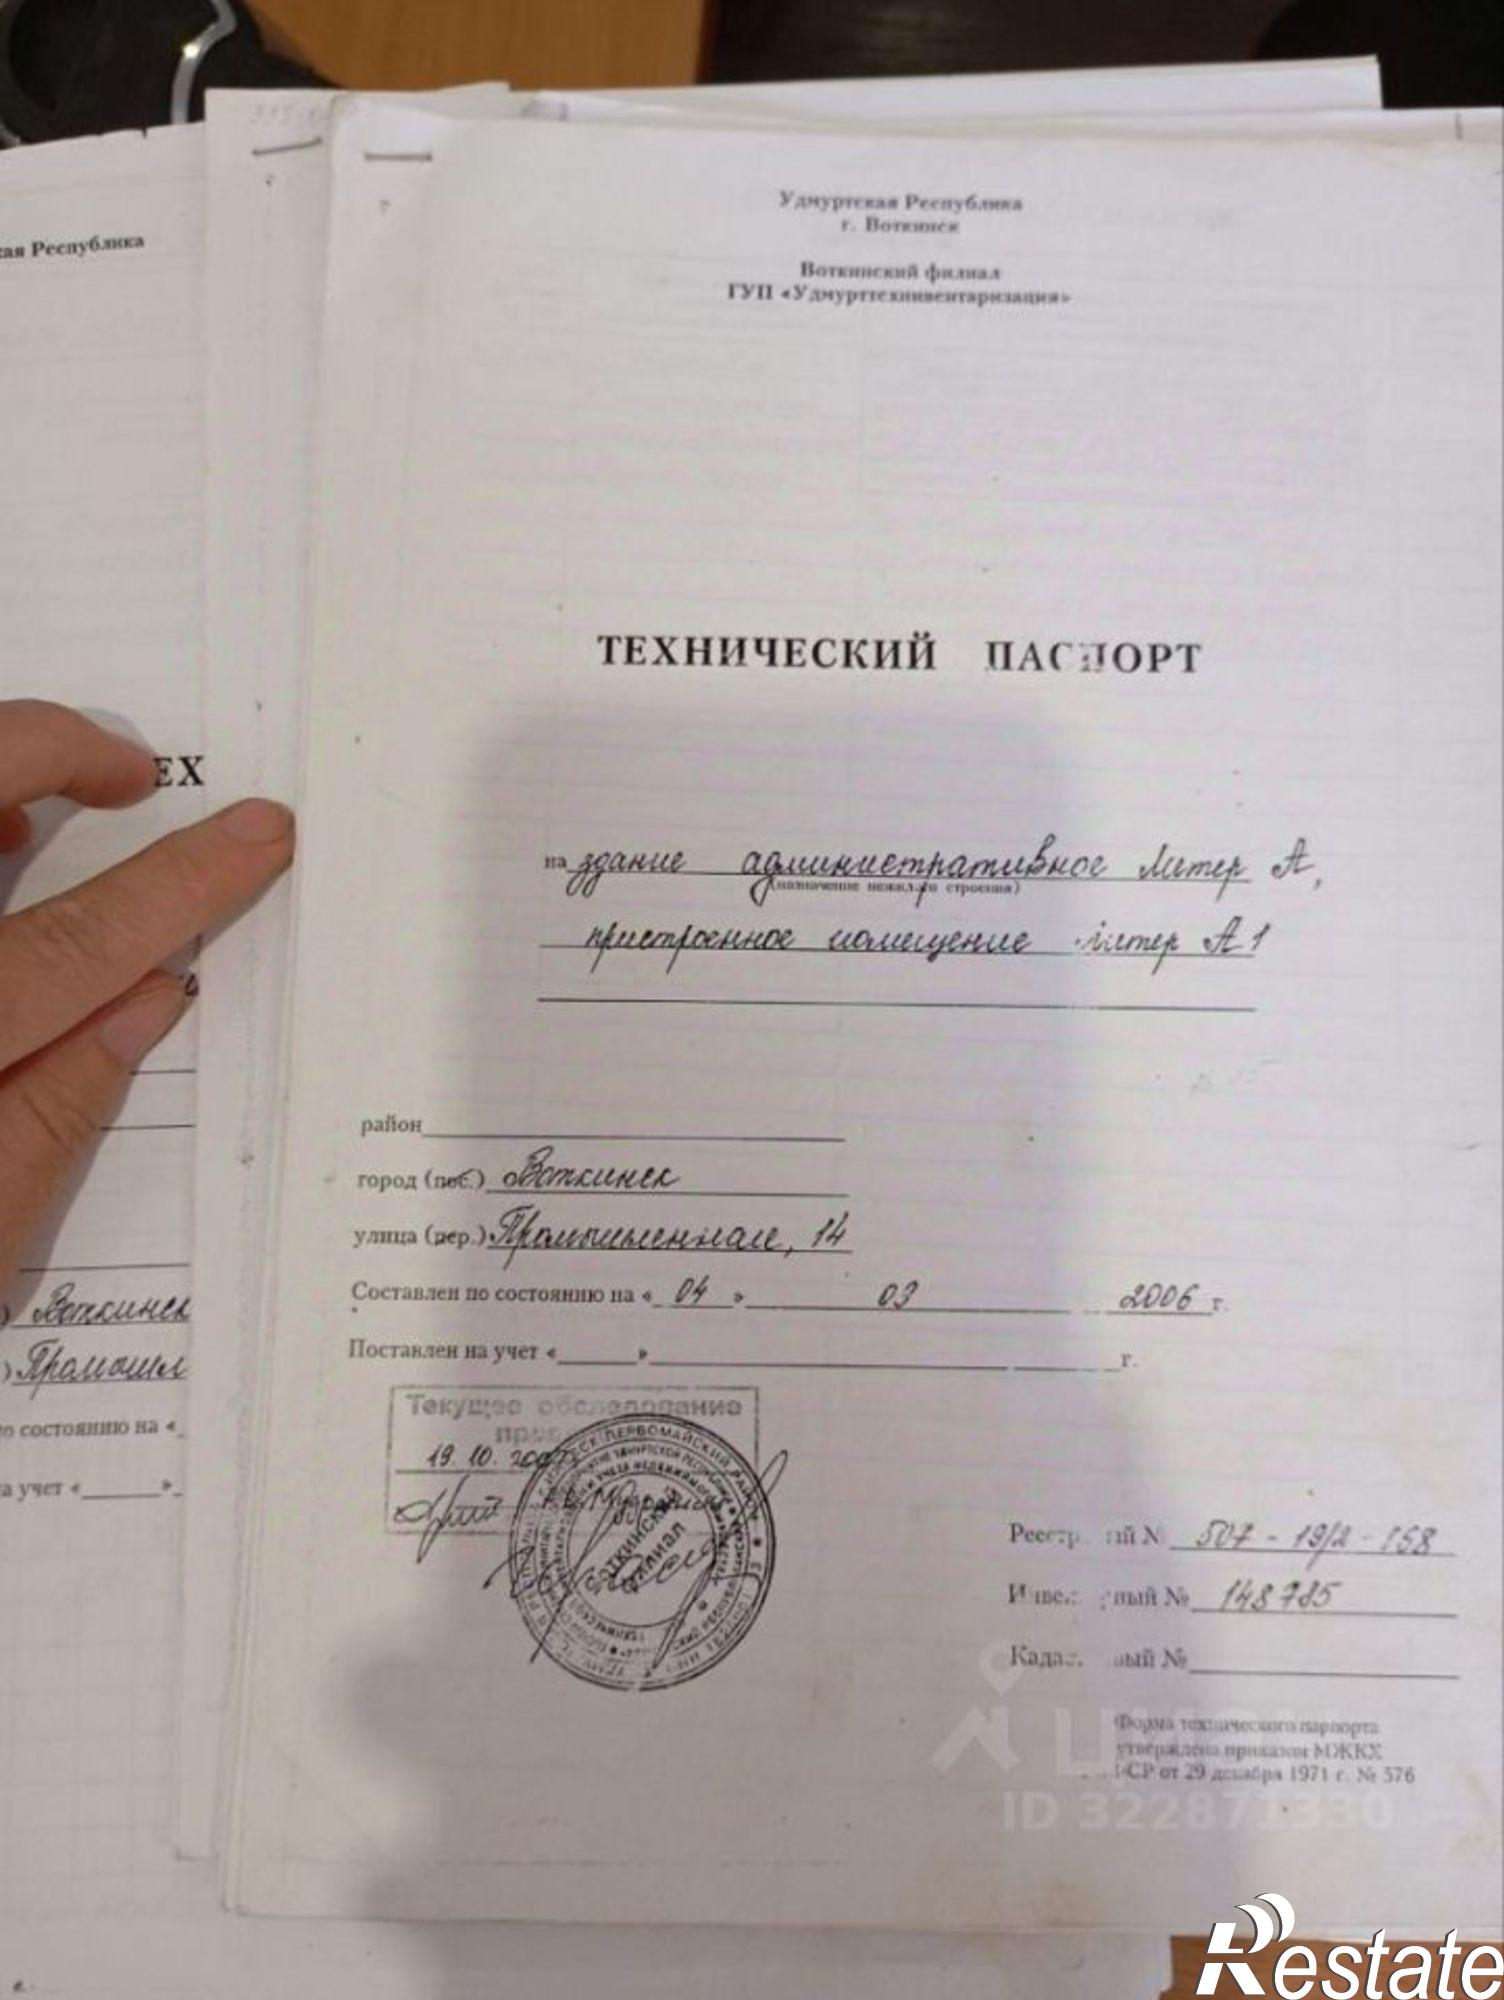 Удмуртская Республика
г. Воткинск
Воткинский филиал
ГУП «Удмурттехинвентаризация»
кая Республика
ТЕХНИЧЕСКИЙ ПАСПОРТ
ЕХ
на здание административное Литер А,
(назначение нежилого строения)
пристроенное помещение Литер А1
район
город (пос.) Воткинск
улица (пер.) Промышленная, 14
Составлен по состоянию на « 04 » 03 2006 г.
Поставлен на учет « » г.
) Воткинск
) Промышл
по состоянию на «
на учет « »
Текущее обследование
19. 10.
ВОТКИНСКИЙ
ФИЛИАЛ
ПЕРВОМАЙСКИЙ РАЙОН
Реестр ый № 507 - 19/2 - 158
Инвен ный № 148785
Кадас ый №
Форма технического паспорта
утверждена приказом МЖКХ
РСФСР от 29 декабря 1971 г. № 576
ID 322871330
Restate